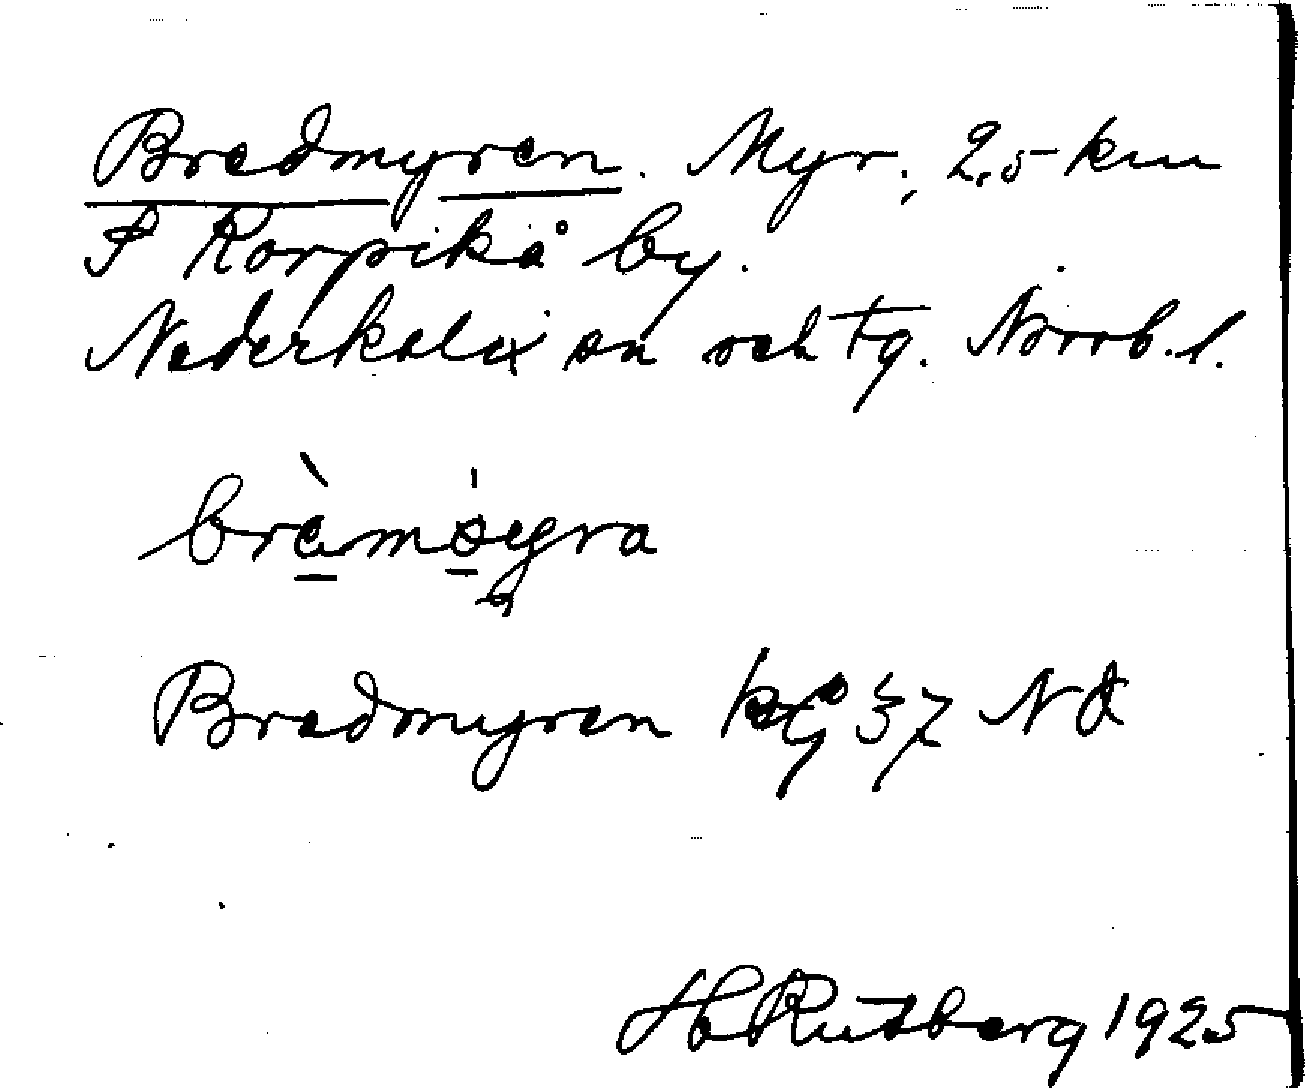 Bredmyren. Myr, 2,5 km
S Korpikå by.
Nederkalix sn och tg. Norrb. l.
Bredmyren 37 NÖ
H Rutberg 1925